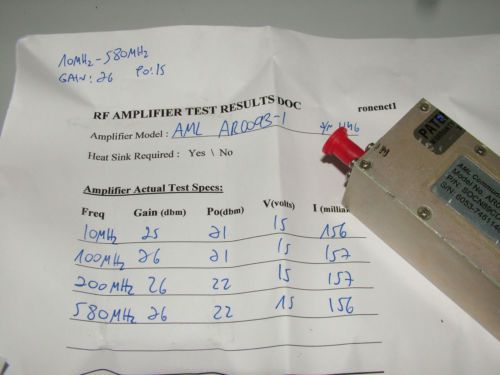 10MHz - 580MHz
GAIN: 26 Po: 15
RF AMPLIFIER TEST RESULTS DOC ronenct1
Amplifier Model : AML AR0093-1
Heat Sink Required : Yes \ No
Amplifier Actual Test Specs:
Freq Gain (dbm) Po(dbm) V(volts) I (millian
10MHz 25 21 15 156
100MHz 26 21 15 157
200MHz 26 22 15 157
580MHz 26 22 15 156
PAT
AML Commu
Model No. AR0
P/N:
S/N: